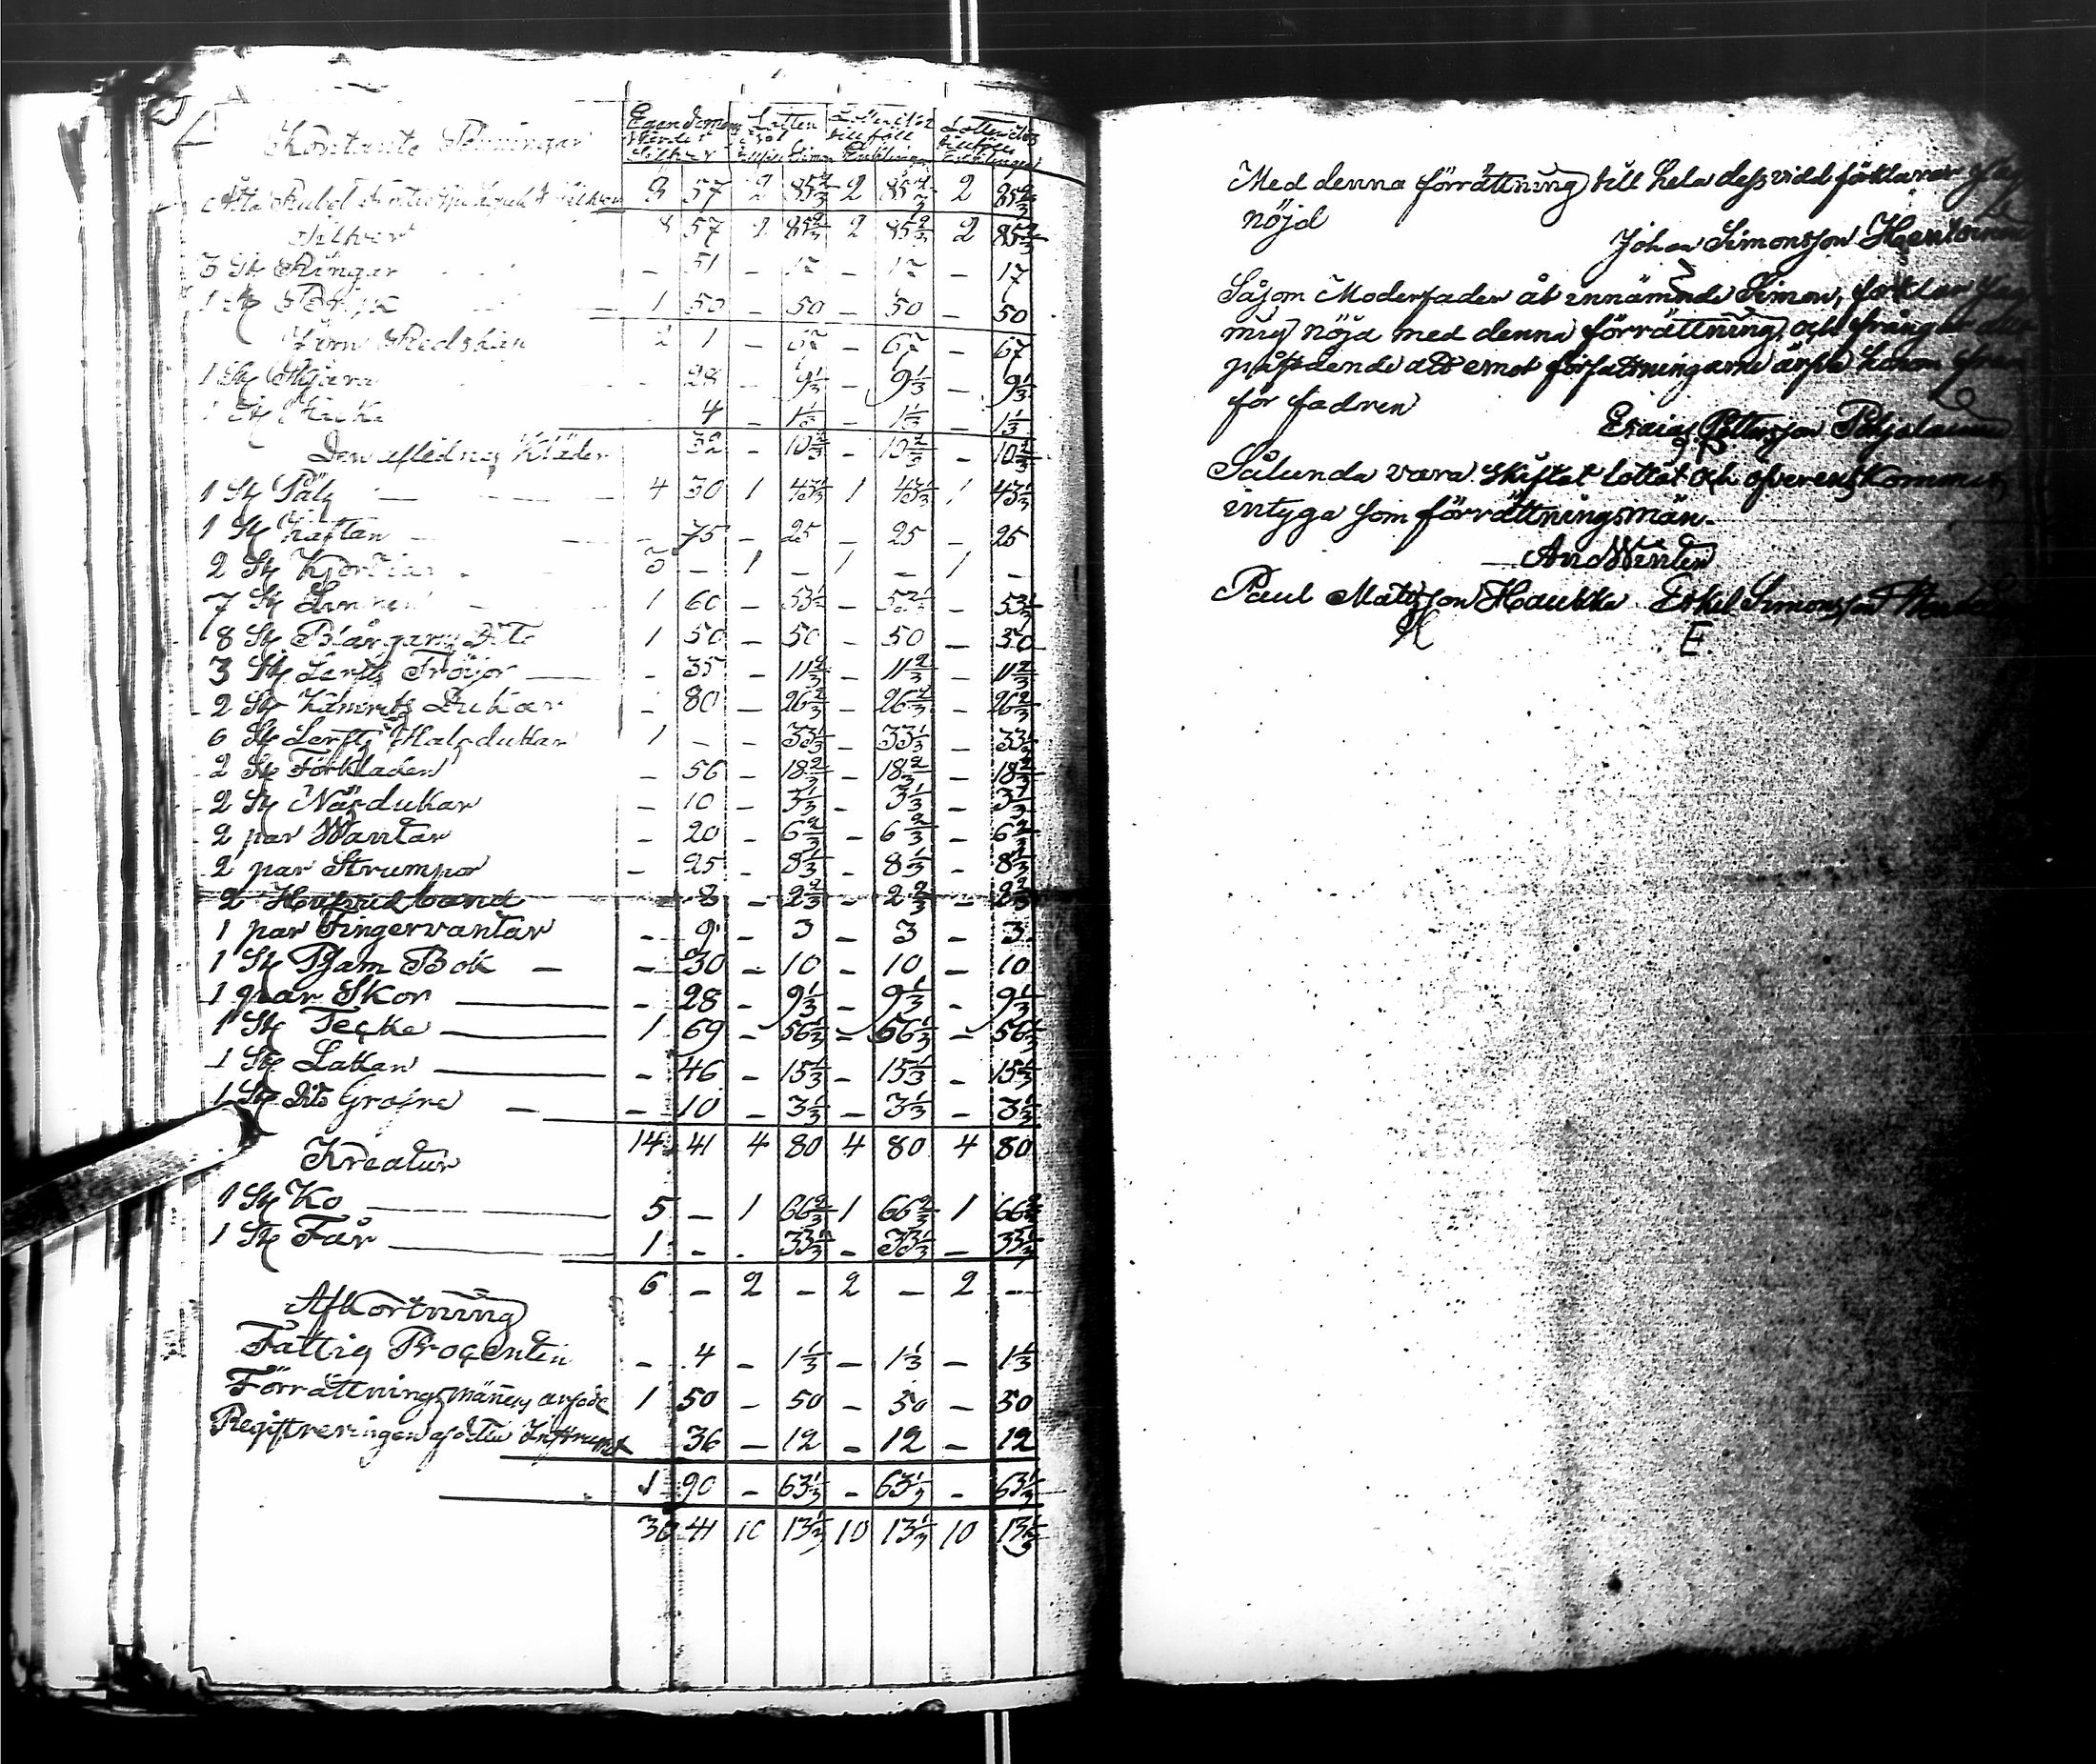 Kontante Penningar
Egendomens Värde i Silfver
Lotten
Silfver 8 57 2 85 2/3 2 85 2/3 2 85 2/3
3 St Ringar - 51 - 17 - 17 - 17
1 St 1 50 - 50 - 50 - 50
Järn Redskap 2 1 - 67 - 67 - 67
1 St Skära - 28 - 9 1/3 - 9 1/3 - 9 1/3
1 St Hacka - 4 - 1 1/3 - 1 1/3 - 1 1/3
Den aflednes Kläder - 32 - 10 2/3 - 10 2/3 - 10 2/3
1 St Päls 4 30 1 43 1/3 1 43 1/3 1 43 1/3
1 St Kaftan - 75 - 25 - 25 - 25
2 St Kjortlar 3 - 1 - 1 - 1 -
7 St 1 60 - 53 1/3 - 53 1/3 - 53 1/3
8 St Blårgarns Dito 1 50 - 50 - 50 - 50
3 St Lerfts Tröijor - 35 - 11 2/3 - 11 2/3 - 11 2/3
2 St Kamrits Dukar - 80 - 26 2/3 - 26 2/3 - 26 2/3
6 St Lerfts Halsdukar 1 - - 33 1/3 - 33 1/3 - 33 1/3
2 St Förkläden - 56 - 18 2/3 - 18 2/3 - 18 2/3
2 St Näsdukar - 10 - 3 1/3 - 3 1/3 - 3 1/3
2 par Wantar - 20 - 6 2/3 - 6 2/3 - 6 2/3
2 par Strumpor - 25 - 8 1/3 - 8 1/3 - 8 1/3
2 Hufvudband - 8 - 2 2/3 - 2 2/3 - 2 2/3
1 par Fingervantar - 9 - 3 - 3 - 3
1 St Psalm Bok - 30 - 10 - 10 - 10
1 par Skor - 28 - 9 1/3 - 9 1/3 - 9 1/3
1 St Tecke 1 69 - 56 1/3 - 56 1/3 - 56 1/3
1 St Lakan - 46 - 15 1/3 - 15 1/3 - 15 1/3
1 St Dito Gröfre - 10 - 3 1/3 - 3 1/3 - 3 1/3
14 41 4 80 4 80 4 80
Kreatur
1 St Ko 5 - 1 66 2/3 1 66 2/3 1 66 2/3
1 St Får 1 - - 33 1/3 - 33 1/3 - 33 1/3
6 - 2 - 2 - 2 -
Afkortning
Fattig Procenten - 4 - 1 1/3 - 1 1/3 - 1 1/3
Förrättningsmännens arfode 1 50 - 50 - 50 - 50
Registreringen af detta Instrument 36 - 12 - 12 - 12
1 90 - 63 1/3 - 63 1/3 - 63 1/3
30 41 10 13 1/3 10 13 1/3 10 13 1/3
Med denna förrättning till hela dess vidd förklarar
nöjd
Johan Simonsson
Såsom Moderfader åt innämnde Simon, förklarar Jag
mig nöjd med denna förrättning, och frångår det
påstående att emot författningarne ärfva honom
för fadren
Esaias Pettersson
Sålunda vara skiftat lottat och öfverenskommit,
intyga som förrättningsmän.
And Winter
Paul Mattsson Haukka Eskel Simonsson
E